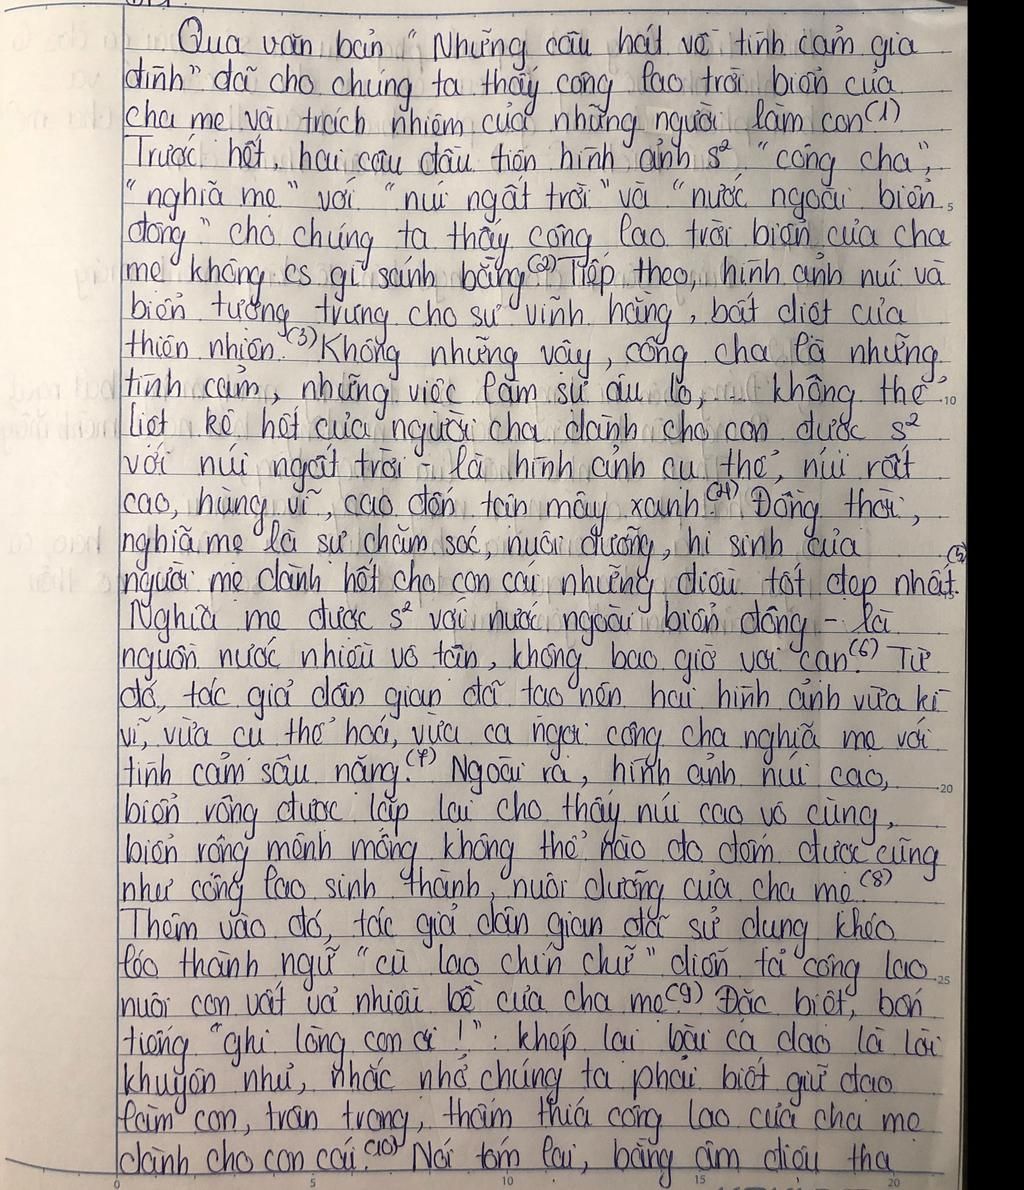 Qua văn bản " Những câu hát về tình cảm gia
đình" đã cho chúng ta thấy công lao trời biển của
cha mẹ và trách nhiệm của những người làm con.(1)
Trước hết, hai câu đầu tiên hình ảnh s² "công cha",
"nghĩa mẹ" với "núi ngất trời" và "nước ngoài biển
đông" cho chúng ta thấy công lao trời biển của cha
mẹ không cs gì sánh bằng.(2) Tiếp theo, hình ảnh núi và
biển tượng trưng cho sự vĩnh hằng, bất diệt của
thiên nhiên.(3) Không những vậy, công cha là những
tình cảm, những việc làm sự âu lo, ... không thể
liệt kê hết của người cha dành cho con được s²
với núi ngất trời - là hình ảnh cụ thể, núi rất
cao, hùng vĩ, cao đến tận mây xanh.(4) Đồng thời,
nghĩa mẹ là sự chăm sóc, nuôi dưỡng, hi sinh của
người mẹ dành hết cho con cái những điều tốt đẹp nhất.(5)
Nghĩa mẹ được s² với nước ngoài biển đông - là
nguồn nước nhiều vô tận, không bao giờ vơi cạn.(6) Từ
đó, tác giả dân gian đã tạo nên hai hình ảnh vừa kì
vĩ, vừa cụ thể hoá, vừa ca ngợi công cha nghĩa mẹ với
tình cảm sâu nặng.(7) Ngoài ra, hình ảnh núi cao,
biển rộng được lặp lại cho thấy núi cao vô cùng,
biển rộng mênh mông không thể nào đo đếm được cũng
như công lao sinh thành, nuôi dưỡng của cha mẹ.(8)
Thêm vào đó, tác giả dân gian đã sử dụng khéo
léo thành ngữ "cù lao chín chữ" diễn tả công lao
nuôi con vất vả nhiều bề của cha mẹ.(9) Đặc biệt, bốn
tiếng "ghi lòng con ơi !": khép lại bài ca dao là lời
khuyên nhủ, nhắc nhở chúng ta phải biết giữ đạo
làm con, trân trọng, thấm thía công lao của cha mẹ
dành cho con cái.(10) Nói tóm lại, bằng âm điệu tha